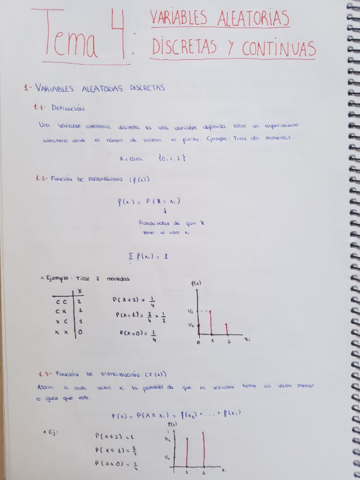 Tema 4: VARIABLES ALEATORIAS
DISCRETAS Y CONTINUAS
1- VARIABLES ALEATORIAS DISCRETAS
1.1- Definición
Una variable aleatoria discreta es una variable definida sobre un experimento
aleatorio donde el número de sucesos es finito. Ejemplo: Tirar dos monedas.
X = caras {0, 1, 2}
1.2- Función de probabilidad (p(x))
p(xi) = P(X = xi)
↓
Probabilidad de que X
tome el valor xi
Σ p(xi) = 1
Ejemplo: Tirar 2 monedas
X
C C 2
C X 1
X C 1
X X 0
P(X=2) = 1/4
P(X=1) = 2/4 = 1/2
P(X=0) = 1/4
p(x)
0 1 2 x
1.3- Función de distribución (F(x))
Asocia a cada valor xi la probabilidad de que la variable tome un valor menor
o igual que este.
F(x) = P(X ≤ xi) = p(x1) + ... + p(xi)
Ej:
P(X≤2) = 1
P(X≤1) = 3/4
P(X≤0) = 1/4
1 2